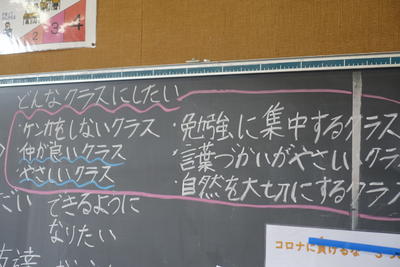 どんなクラスにしたい
・ケンカをしないクラス
・仲が良いクラス
・やさしいクラス
・勉強に集中するクラス
・言葉づかいがやさしいクラ
・自然を大切にするクラス
できるように
なりたい
コロナに負けるな
2 3 4